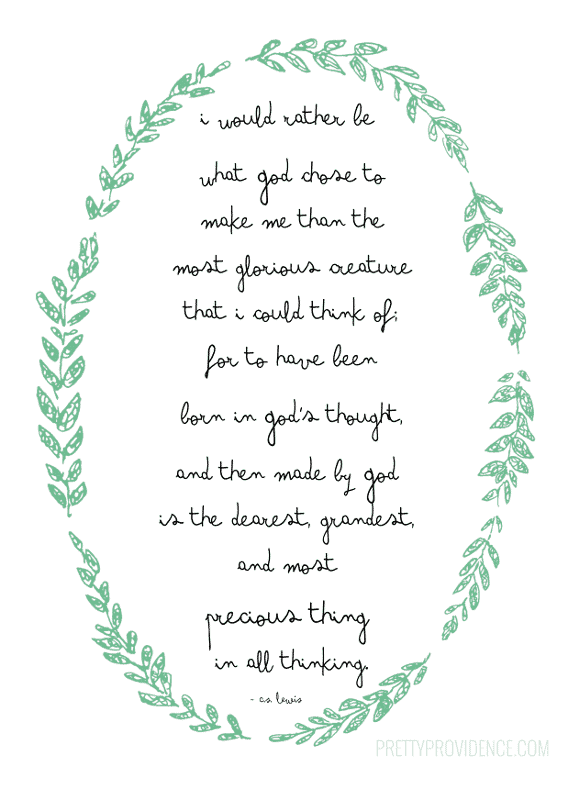 i would rather be
what god chose to
make me than the
most glorious creature
that i could think of;
for to have been
born in god's thought,
and then made by god
is the dearest, grandest,
and most
precious thing
in all thinking.
- c.s. lewis
PRETTYPROVIDENCE.COM